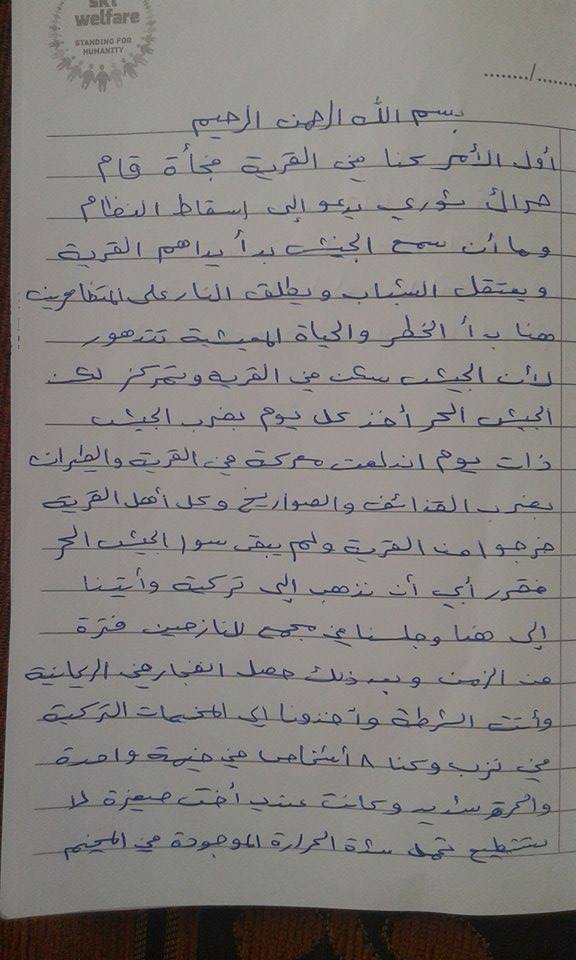 SKT
welfare
STANDING FOR
HUMANITY
......../......
بسم الله الرحمن الرحيم
أول الأمر كنا في القرية فجأة قام
حراك ثوري يدعو إلى إسقاط النظام
وما أن سمع الجيش بدأ يداهم القرية
ويعتقل الشباب ويطلق النار على المتظاهرين
هنا بدأ الخطر والحياة المعيشية تتدهور
لأن الجيش سكن في القرية وتمركز لكن
الجيش الحر أخذ كل يوم يضرب الجيش
ذات يوم اندلعت معركة في القرية والطيران
يضرب القذائف والصواريخ وكل أهل القرية
خرجوا من القرية ولم يبقى سوا الجيش الحر
فقرر أبي أن نذهب إلى تركية وأتينا
إلى هنا وجلسنا في مجمع للنازحين فترة
من الزمن وبعد ذلك حصل انفجار في الريحانية
وأتت الشرطة وأخذونا إلى المخيمات التركية
في نزب وكنا ٨ أشخاص في خيمة واحدة
والحرة شديد وكانت عندي أخت صغيرة لا
تستطيع تحمل شدة الحرارة الموجودة في المخيم